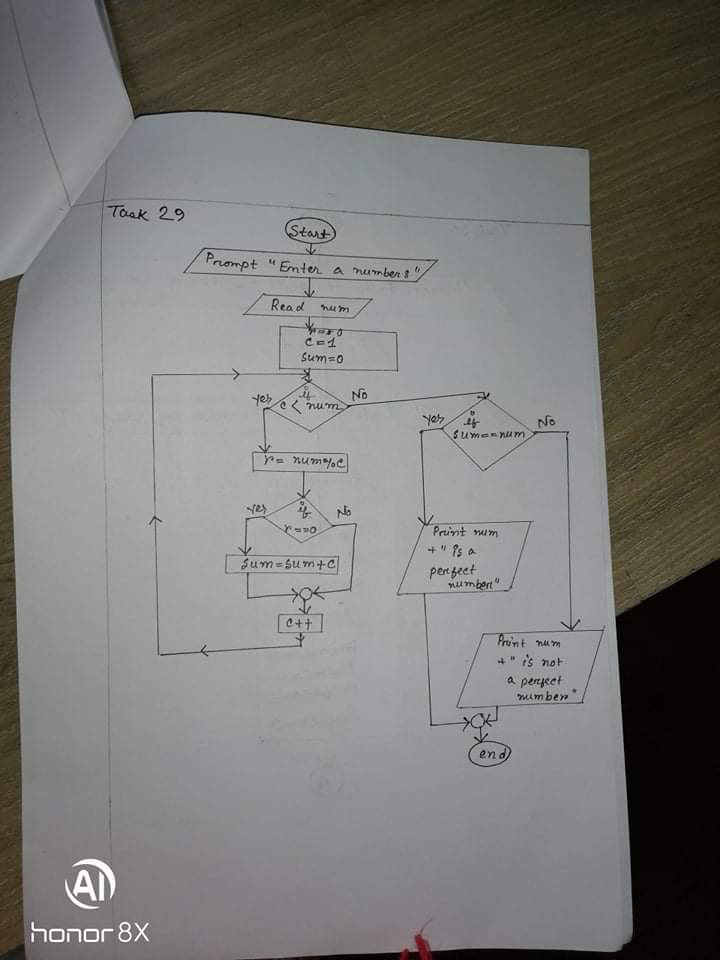 Task 29
Start
Prompt "Enter a numbers"
Read num
c=1
sum=0
if
c < num
Yes
No
r= num%c
if
r==0
Yes
No
sum=sum+c
c++
if
sum==num
Yes
No
Print num
+" is a
perfect
number"
Print num
+" is not
a perfect
number"
end
AI
honor 8X